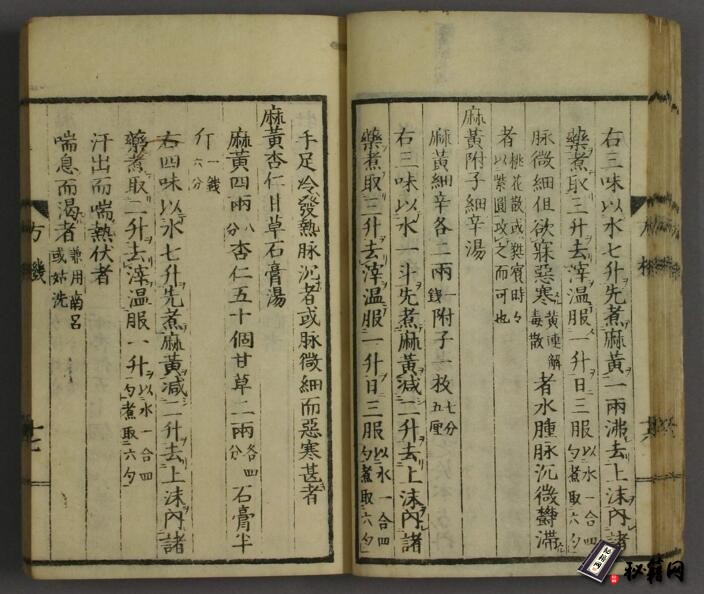 右三味以水七升先煮麻黃一兩沸去上沫內諸
藥煮取三升去滓溫服一升日三服以水一合四勺煮取六勺
脉微細但欲寐惡寒黃連解毒散者水腫脉沉微欝滯
者桃花散或蕤賓時々以紫圓攻之而可也
麻黃附子細辛湯
麻黃細辛各二兩一錢附子一枚七分五厘
右三味以水一斗先煮麻黃減二升去上沫內諸
藥煮取三升去滓溫服一升日三服以水一合四勺煮取六勺
方機
手足冷發熱脉沉者或脉微細而惡寒甚者
麻黃杏仁甘草石膏湯
麻黃四兩八分杏仁五十個甘草二兩各四分石膏半
斤一錢六分
右四味以水七升先煮麻黃減二升去上沫內諸
藥煮取二升去滓溫服一升以水一合四勺煮取六勺
汗出而喘熱伏者
喘息而渴者兼用南呂或姑洗
方機
十七
秘籍网